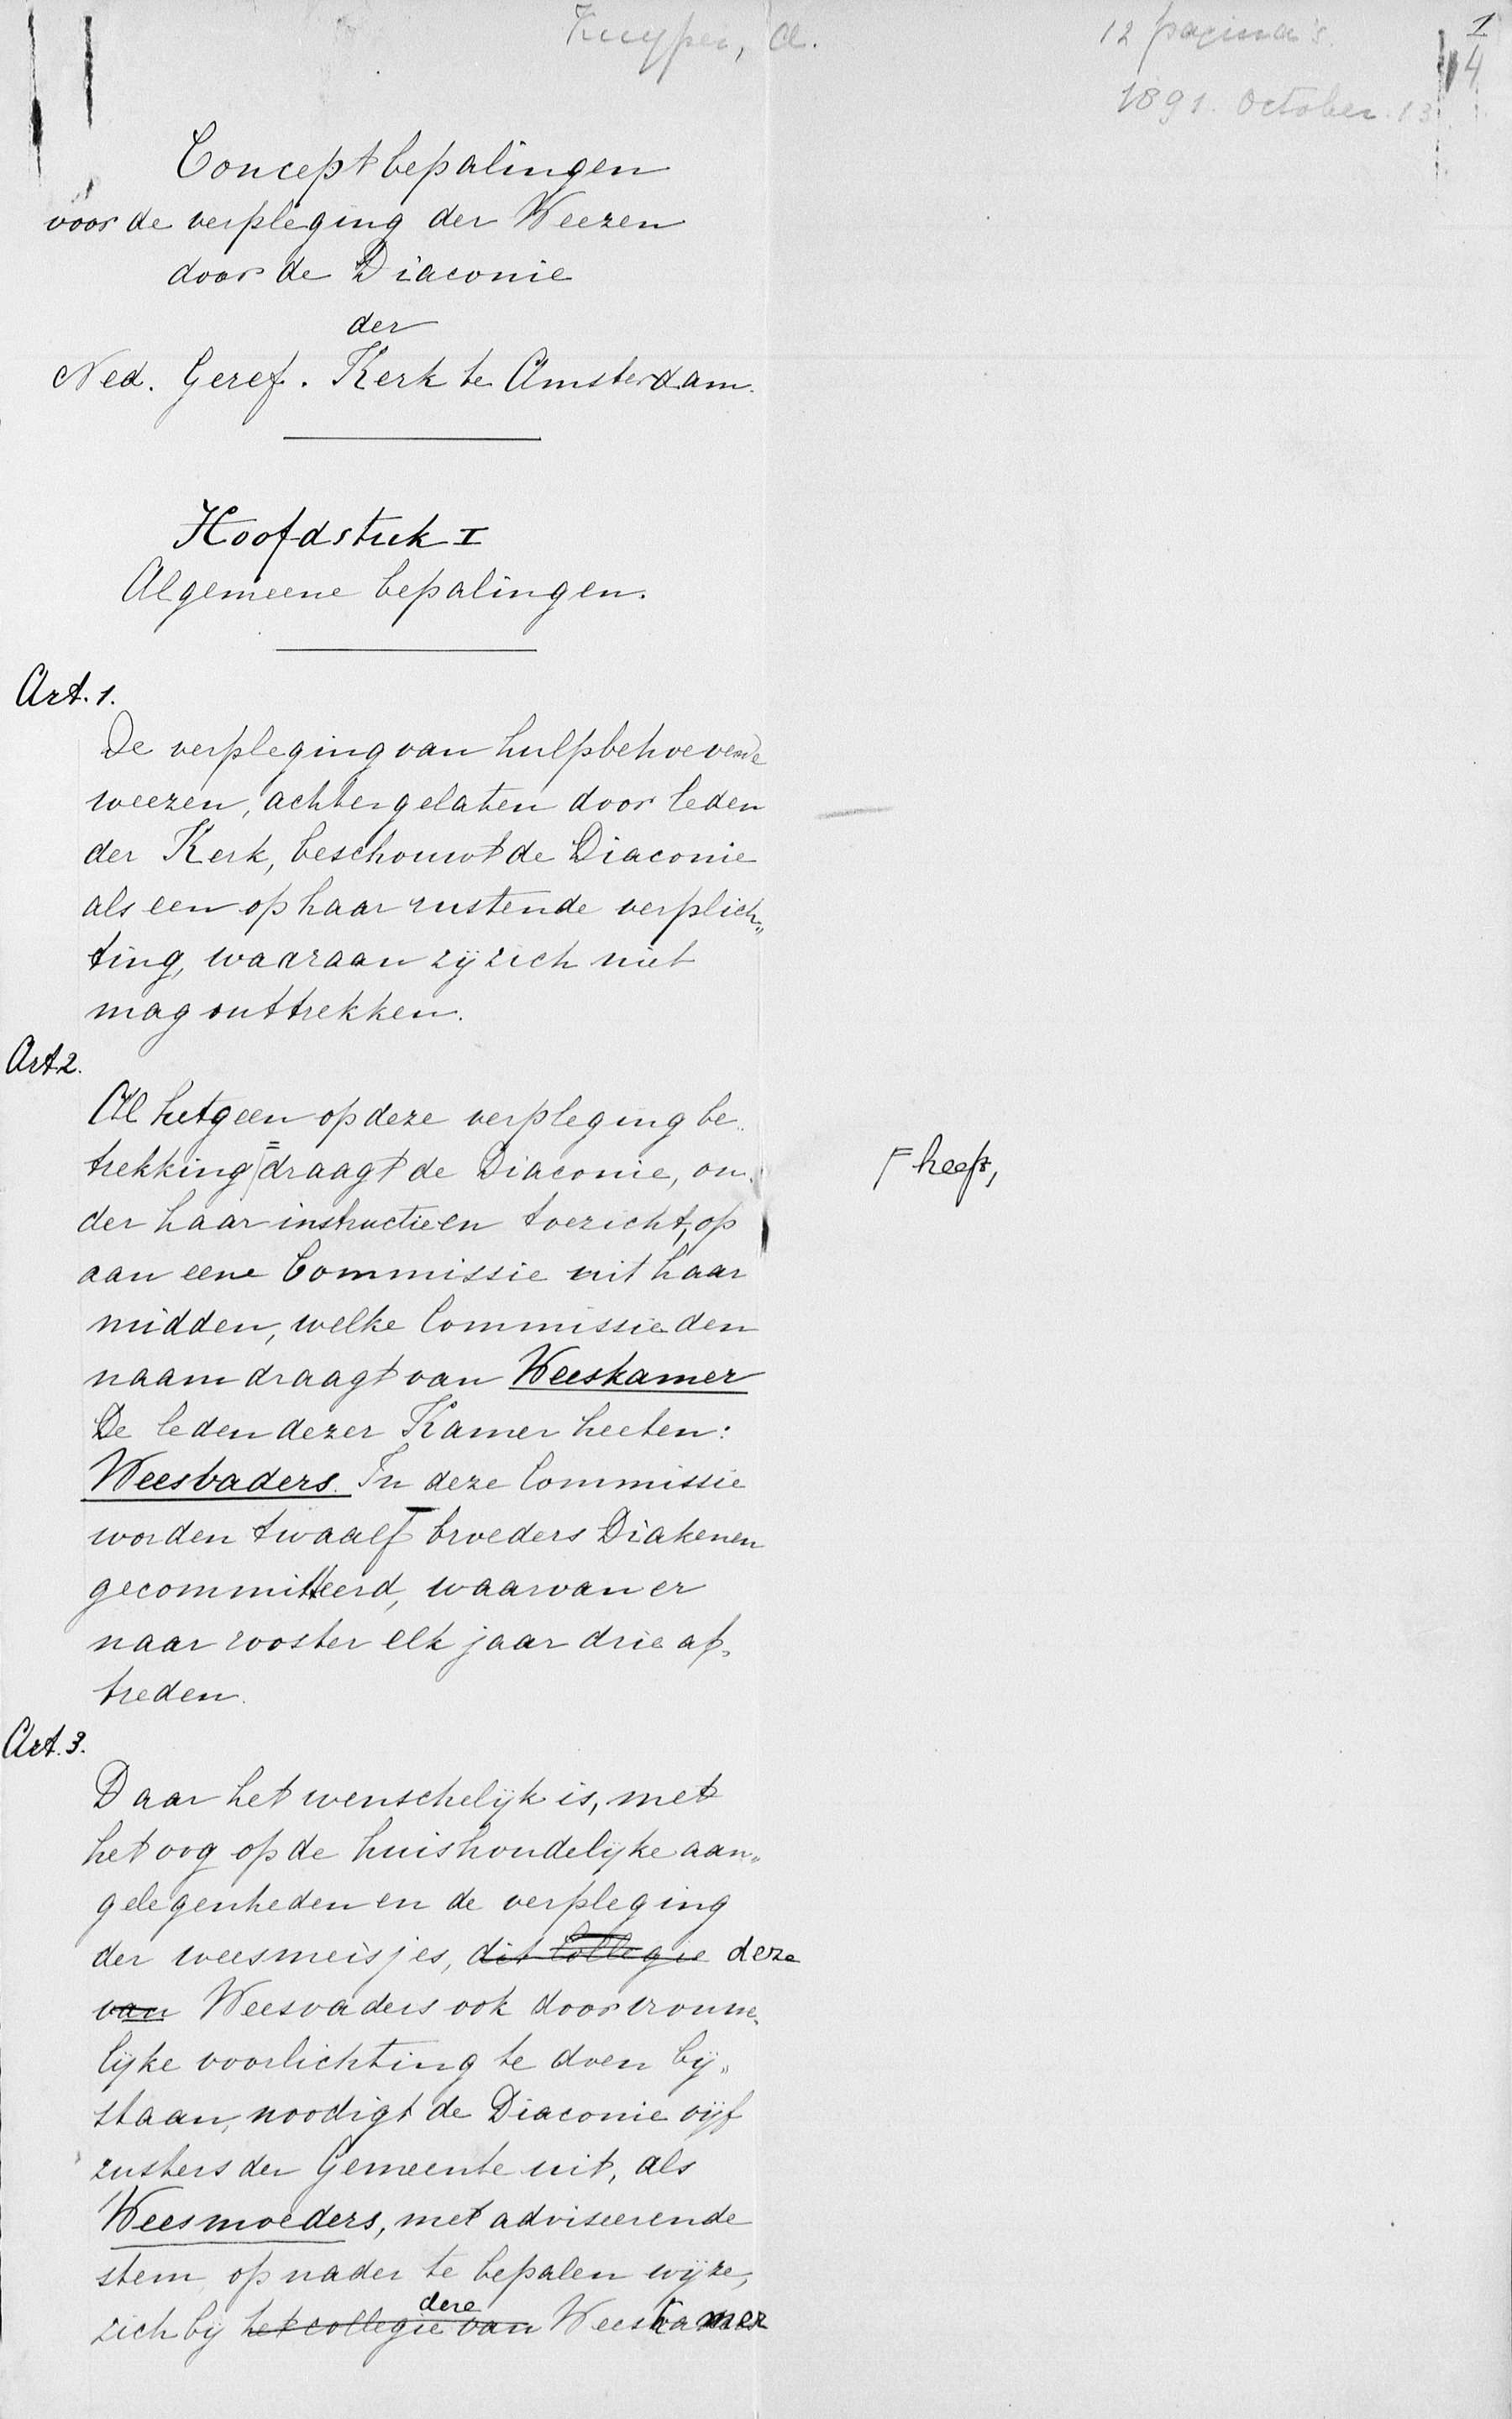 Kuyper, A.
12 pagina's.
1
4
1891. October 13
Concept bepalingen
voor de verpleging der Weezen
door de Diaconie
der
Ned. Geref. Kerk te Amsterdam.
Hoofdstuk I
Algemeene bepalingen.
Art. 1.
De verpleging van hulpbehoevende
weezen, achtergelaten door leden
der Kerk, beschouwt de Diaconie
als een op haar rustende verplich„
ting, waaraan zij zich niet
mag onttrekken.
Art 2.
Al hetgeen op deze verpleging be„
trekking draagt de Diaconie, on„
der haar instructie en toezicht, op
aan eene Commissie uit haar
midden, welke Commissie den
naam draagt van Weeskamer
De leden dezer Kamer heeten:
Weesvaders. In deze Commissie
worden twaalf broeders Diakenen
gecommitteerd, waarvan er
naar rooster elk jaar drie af„
treden.
F heeft,
Art. 3.
Daar het wenschelijk is, met
het oog op de huishoudelijke aan„
gelegenheden en de verpleging
der weesmeisjes, dit Collegie deze
van Weesvaders ook door vrouwe„
lijke voorlichting te doen bij„
staan, noodigt de Diaconie vijf
zusters der Gemeente uit, als
Weesmoeders, met adviseerende
stem op nader te bepalen wijze,
dere
zich bij het collegie van Weeskamer